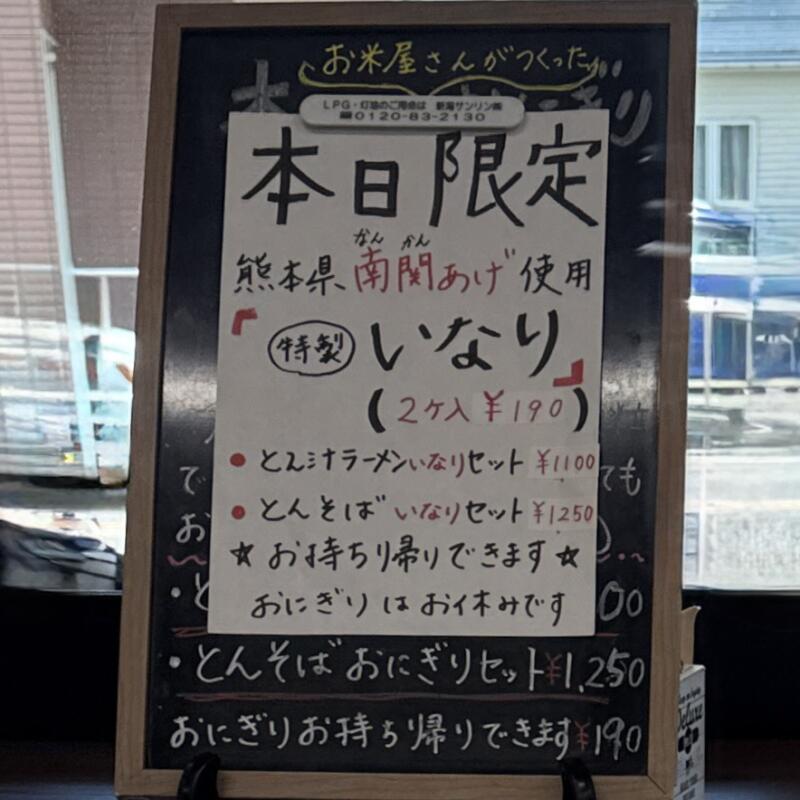 お米屋さんがつくった
LPG・灯油のご用命は 新潟サンリン㈱
☎0120-83-2130
本日限定
なん かん
熊本県、南関あげ使用
『特製 いなり』
(2ケ入 ¥190)
● とん汁ラーメンいなりセット ¥1100
● とんそば いなりセット ¥1250
☆ お持ち帰りできます ☆
おにぎりはお休みです
・とんそばおにぎりセット¥1,250
おにぎりお持ち帰りできます¥190